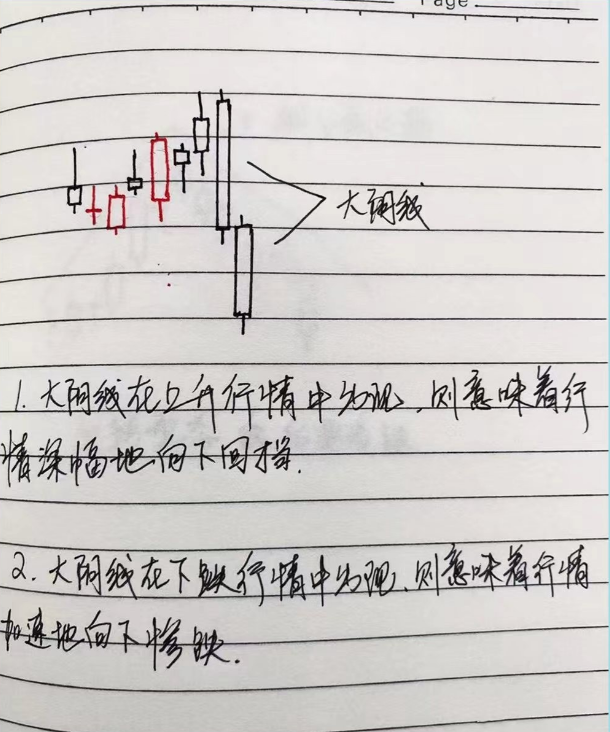 Page
大阴线
1. 大阴线在上升行情中出现,则意味着行
情深幅地向下回档.
2. 大阴线在下跌行情中出现,则意味着行情
加速地向下惨跌.